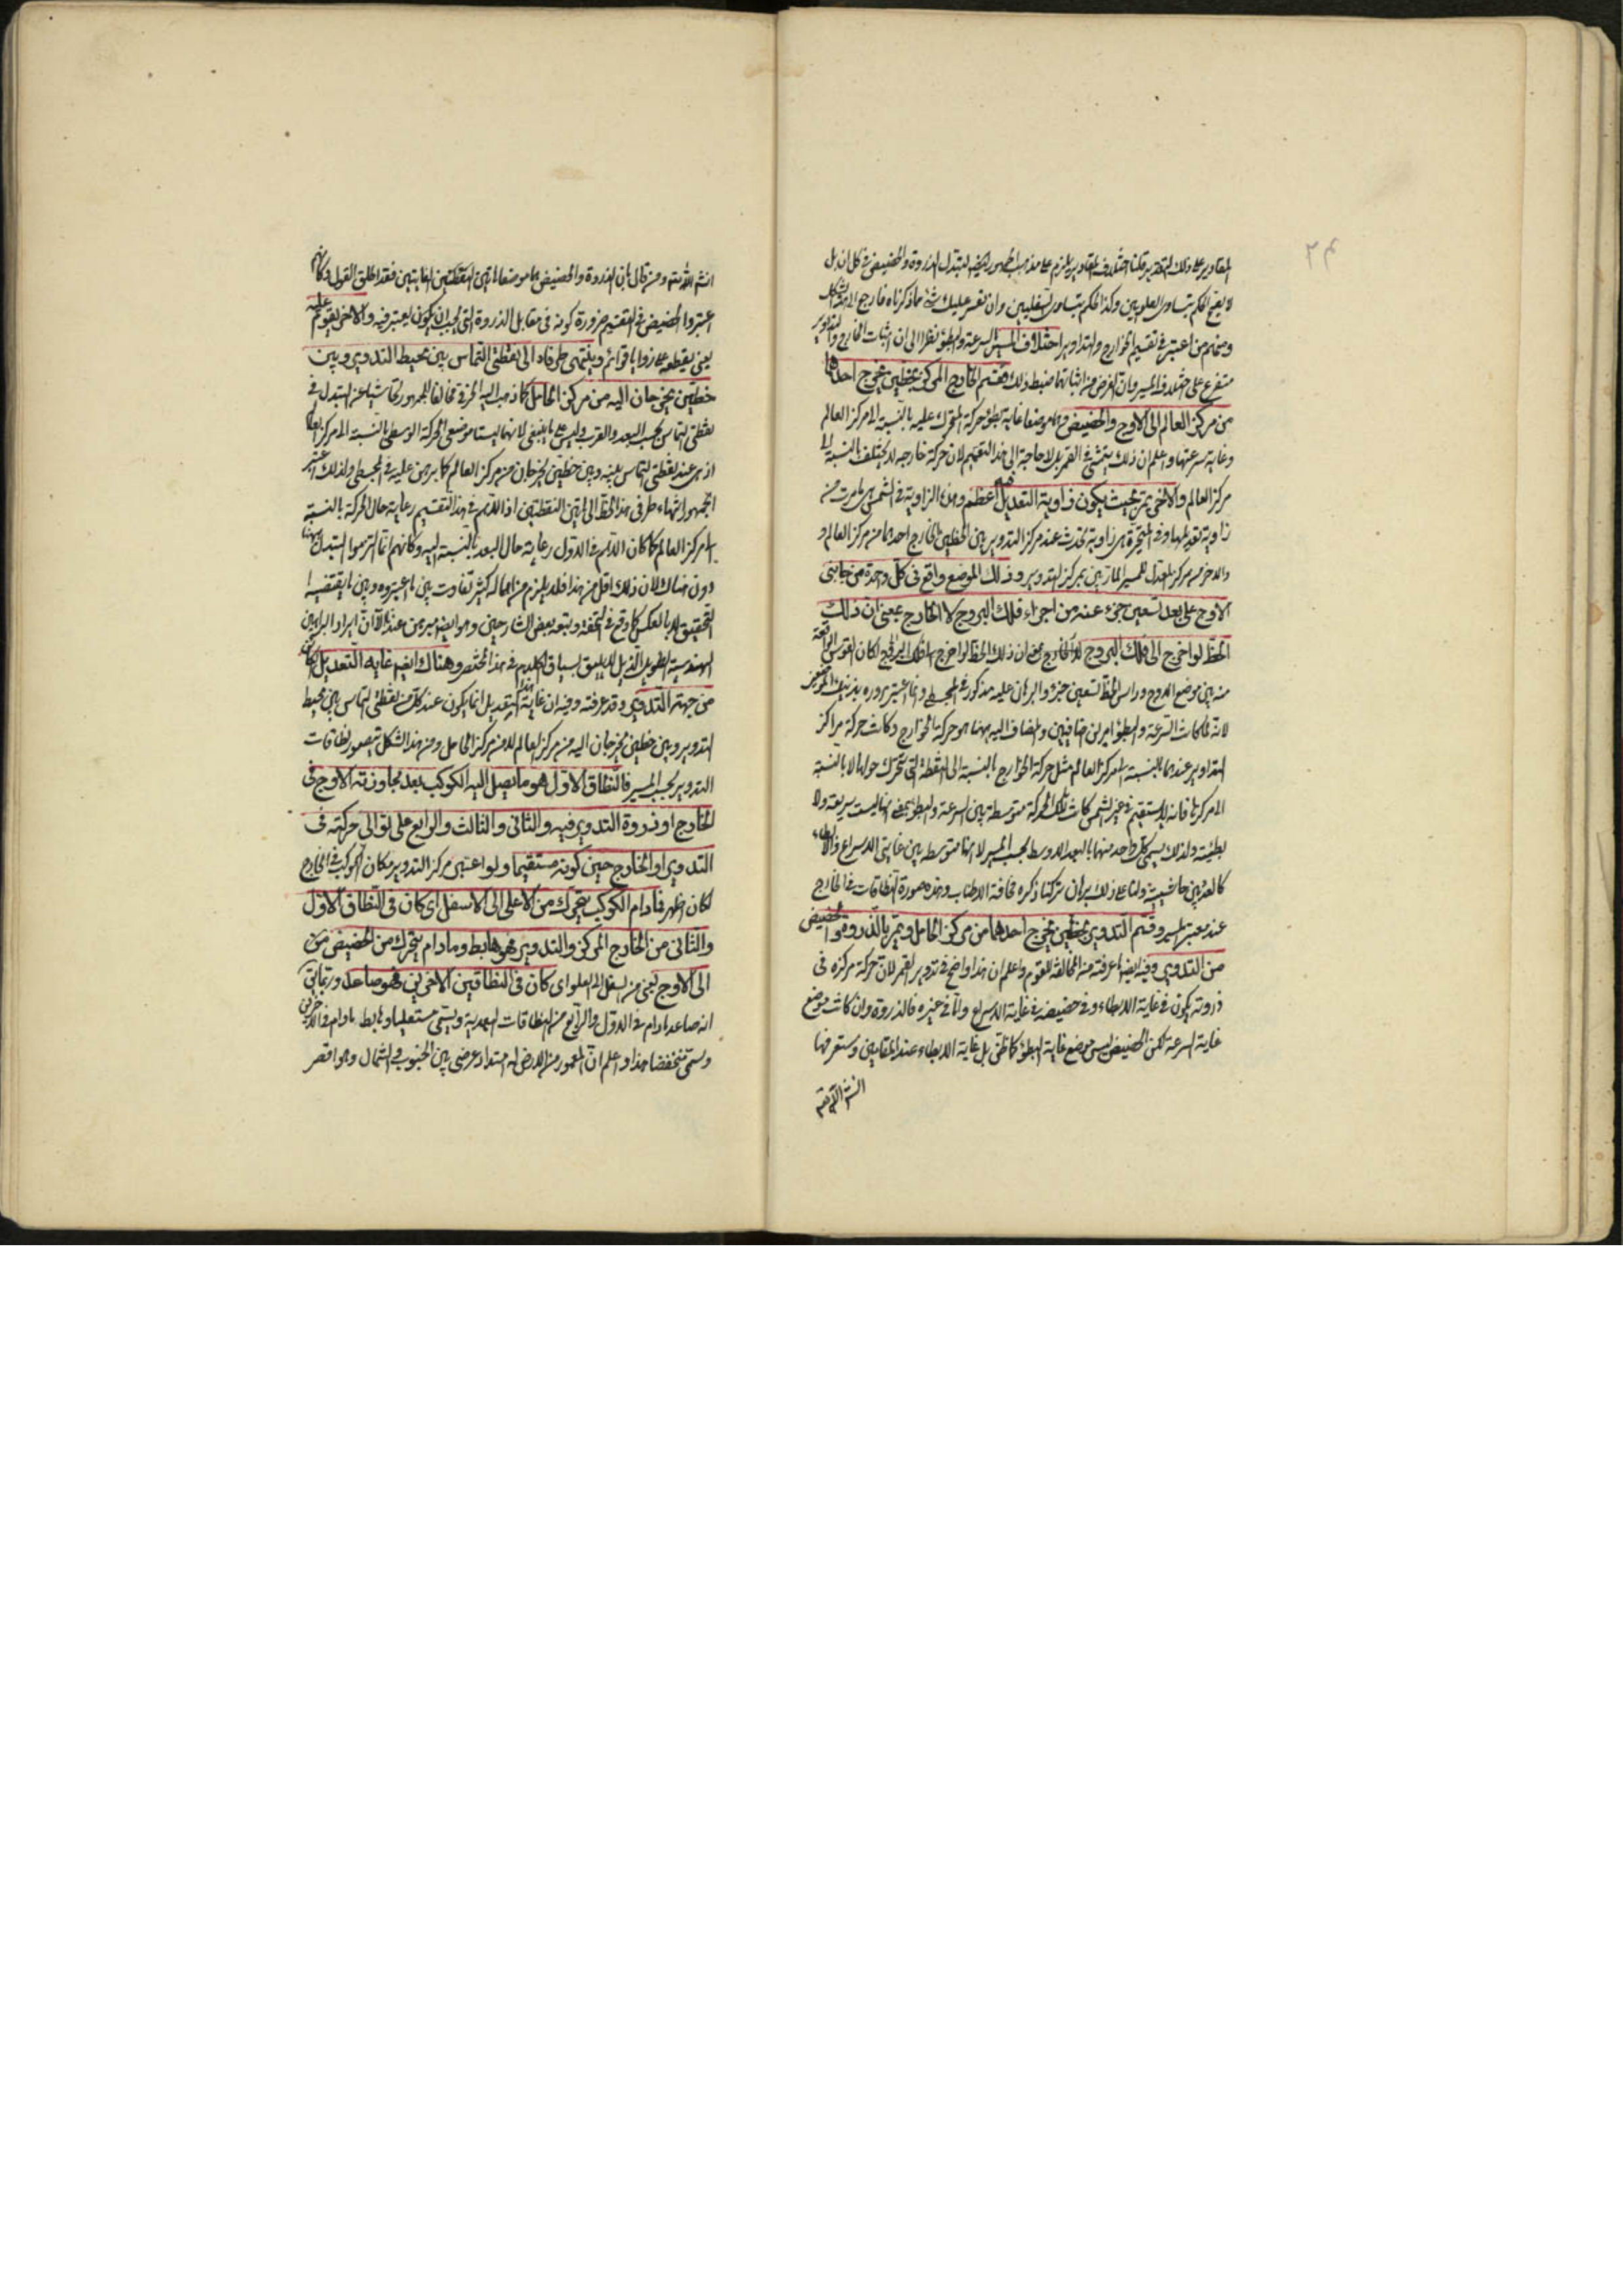 ٢٤
المقادير على ذلك التقدير قلنا اختلاف المقادير يلزم على مذهب الجمهور ايضا لتبدل الذروة والحضيض في كل ان بل
لا يصح الحكم بتساوى العلويين وكذا الحكم بتساوى السفليين وان تعسر عليك شئ مما ذكرناه فارجع الى هذا الشكل
ومنهم من اعتبر في تقسيم الخوارج والتداوير اختلاف المسير السرعة والبطؤ نظرا الى ان اثبات الخارج والتدوير
متفرع على اختلاف المسير وان الغرض من اثباتهما ضبط ذلك فقسم الخارج المركز بخطين يخرج احدهما
من مركز العالم الى الاوج والحضيض وهما موضعا غاية بطؤ حركة المتحرك عليه بالنسبة الى مركز العالم
وغاية سرعتها واعلم ان ذلك يتمشى في القمر بل لا حاجة الى هذا التقسيم لان حركة خارجه لا يختلف بالنسبة الى
مركز العالم والاخر يمر بحيث يكون زاوية التعديل فيه اعظم وهذه الزاوية في الشمس هى ما مرت من
زاوية تعديلها وفي المتحيرة هى زاوية تحدث عند مركز التدوير بين الخطين الخارج احدهما من مركز العالم و
والاخر من مركز معدل المسير المارين بمركز التدوير وذلك الموضع واقع فى كل واحدة من جانبى
الاوج على بعد تسعين جزء عنه من اجزاء فلك البروج لا الخارج بمعنى ان ذلك
الخط لو اخرج الى فلك البروج لا الخارج بمعنى ان ذلك الخط لو اخرج الى فلك البروج لكان القوس الواقعة
منه بين موضع الاوج وراس الخط تسعين جزء والبرهان عليه مذكور في المجسطى وانما اعتبر مروره بذينك الموضعين
لانه لما كانت السرعة والبطؤ امرين اضافيين والمضاف اليه ههنا هو حركة الخوارج وكانت حركة مراكز
التداوير عندهما بالنسبة الى مركز العالم مثل حركة الخوارج بالنسبة الى النقطة التى تتحرك حولها لا بالنسبة
الى مركزها فانه لا يستقيم في غير الشمس كانت تلك الحركة متوسطة بين السرعة والبطؤ بمعنى انها ليست سريعة ولا
بطيئة ولذلك يسمى كل واحد منهما بالبعد الاوسط بحسب المسير لا انها متوسطة بين غايتى الاسراع والابطاء
كالبعدين ولنا على ذلك برهان تركنا ذكره مخافة الاطناب وهذه صورة النطاقات في الخارج
عند معتبر المسير وقسم التدوير بخطين يخرج احدهما من مركز الحامل ويمر بالذروة والحضيض
من التدوير وفيه ايضا ما عرفته من المخالفة للقوم واعلم ان هذا واضح في تدوير القمر لان حركة مركزه فى
ذروته يكون في غاية الابطاء وفي حضيضه في غاية الاسراع واما في غيره فالذروة وان كانت موضع
غاية السرعة لكن الحضيض ليس موضع غاية البطؤ كما ظن بل غاية الابطاء عند المقامين وستعرفها
ان شاء الله تعالى
انشاء الله تعالى ومن قال بان الذروة والحضيض هما موضعا هاتين النقطتين الغايتين فقد اطلق القول وكانهم
اعتبروا الحضيض في التقسيم ضرورة كونه في مقابل الذروة التى يجب ان يكون يعتبر فيه والاخر يقوم عليه
يعنى يقطعه على زوايا قوائم وينتهى طرفاه الى نقطتى التماس بين محيط التدوير وبين
خطين يخرجان اليه من مركز الحامل كما ذهب اليه الخرقى مخالفا للجمهور تحاشيا عن التبدل في
نقطتى التماس بحسب البعد والقرب وليس على ما ينبغى لانهما ليستا موضعى الحركة الوسطى بالنسبة الى مركز العالم
اذ هى عند نقطتى التماس بينه وبين خطين يخرجان من مركز العالم كما برهن عليه في المجسطى ولذلك اعتبر
الجمهور انتهاء طرفى هذا الخط الى هاتين النقطتين اذ اللازم في هذا التقسيم رعاية حال الحركة بالنسبة
الى مركز العالم كما كان اللازم في الاول رعاية حال البعد بالنسبة اليه وكانهم انما التزموا التبدل ههنا
دون هناك لان ذلك اقل من هذا فلا يلزم من اهماله كثير تفاوت بين ما اعتبروه وبين ما يقتضيه
التحقيق لا بالعكس كما وقع في التحفة وتبعه بعض الشارحين وهو ايضا مبرهن عندنا الا ان ايراد البراهين
الهندسية الطويلة الذيل لا يليق بسياق الكلام في هذا المختصر وهناك ايضا غاية التعديل الكائن
من جهة التدوير وقد عرفته وفيه ان غاية هذا التعديل انما يكون عند كل من نقطتى التماس بين محيط
التدوير وبين خطين يخرجان اليه من مركز العالم لا من مركز الحامل ومن هذا الشكل يتصور نطاقات
التدوير بحسب المسير فالنطاق الاول هو ما يصل اليه الكوكب بعد مجاوزته الاوج فى
الخارج او ذروة التدوير فيه والثانى والثالث والرابع على توالى حركته فى
التدوير او الخارج حين كونه مستقيما ولو اعتبر مركز التدوير مكان الكوكب في الخارج
لكان اظهر فما دام الكوكب يتحرك من الاعلى الى الاسفل اى كان فى النطاق الاول
والثانى من الخارج المركز والتدوير فهو هابط وما دام يتحرك من الحضيض من
الى الاوج يعنى من السفل الى العلو اى كان فى النطاقين الاخرين فهو صاعد وربما يقال
انه صاعد ما دام في الاول والرابع من النطاقات البعدية ويسمى مستعليا وهابط ما دام في الاخرين
ويسمى منخفضا هذا واعلم ان المعمور من الارض له امتداد عرضى بين الجنوب والشمال وهو اقصر